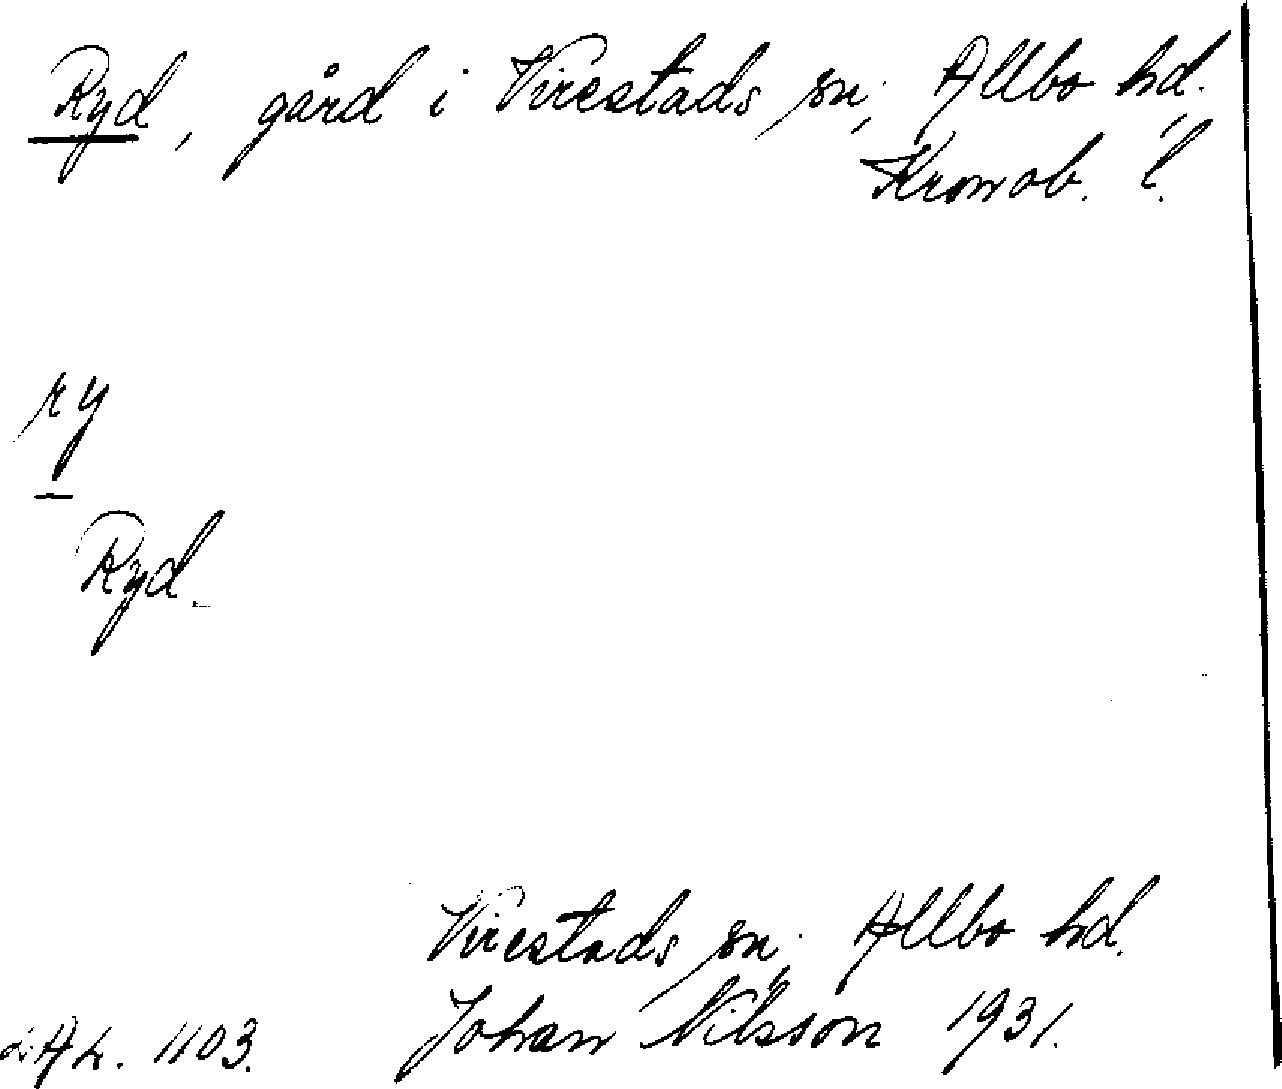 Ryd, gård i Virestads sn, Allbo hd.,
Kronob. l.
ry
Ryd.
Virestads sn. Allbo hd.
Johan Nilsson 1931.
1103.